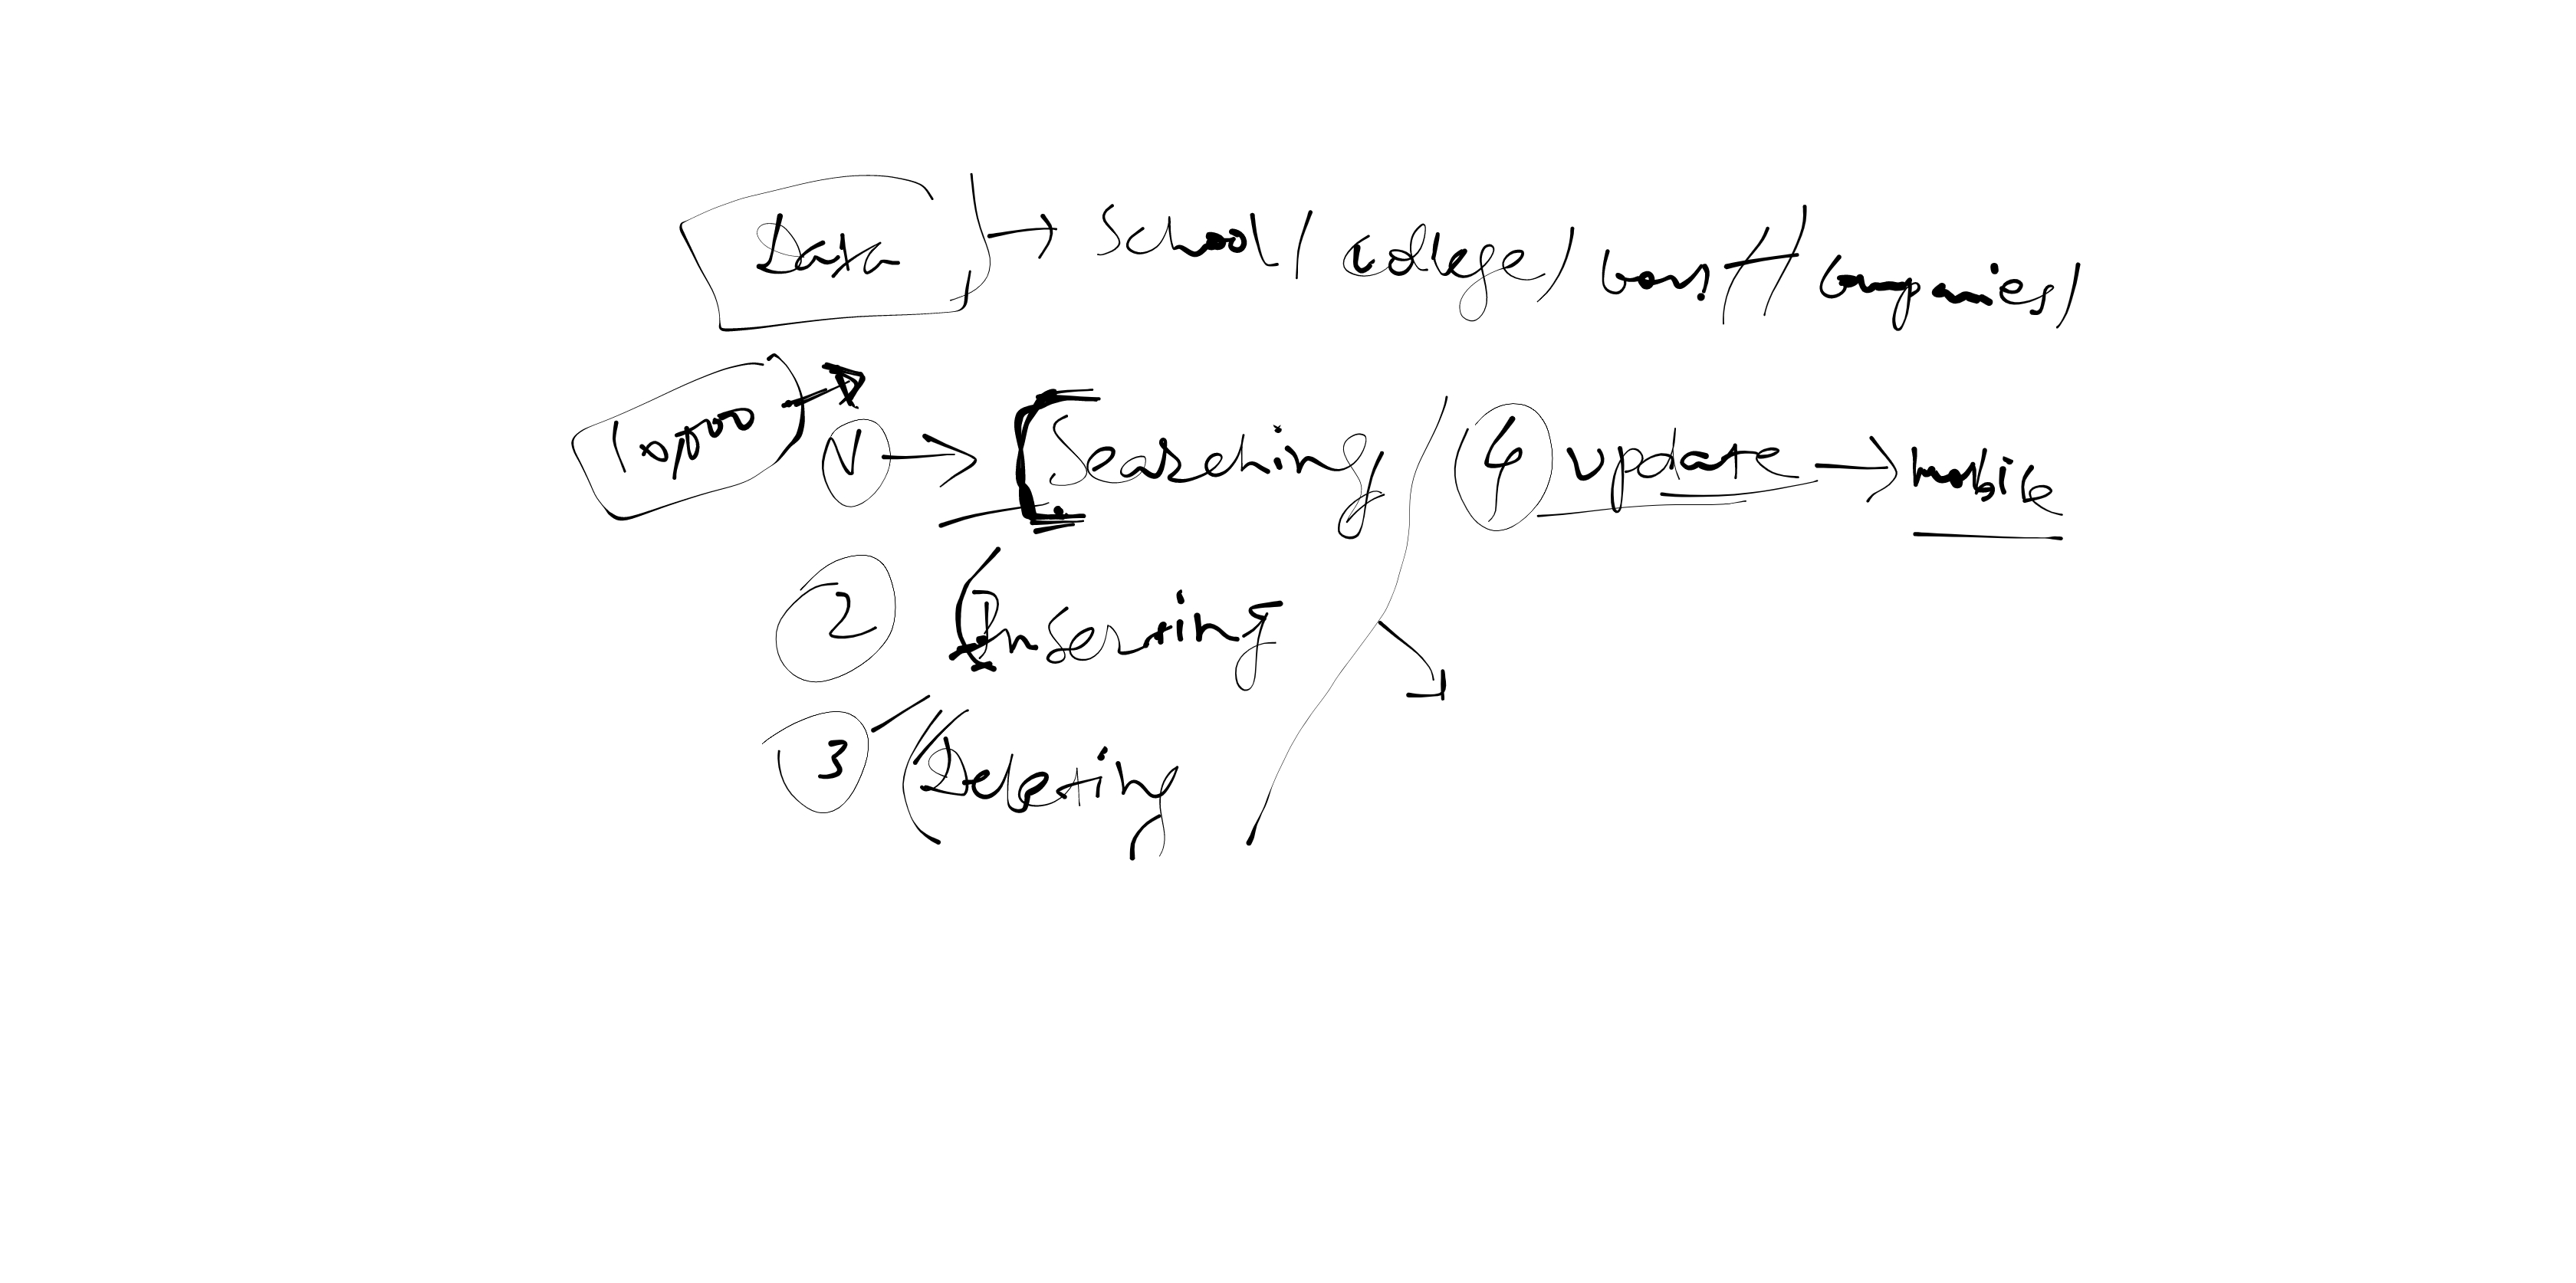 Data → School / College / Govt / Companies /
10,000 → 1 → Searching
2 Inserting
3 Deleting
4 update → mobile